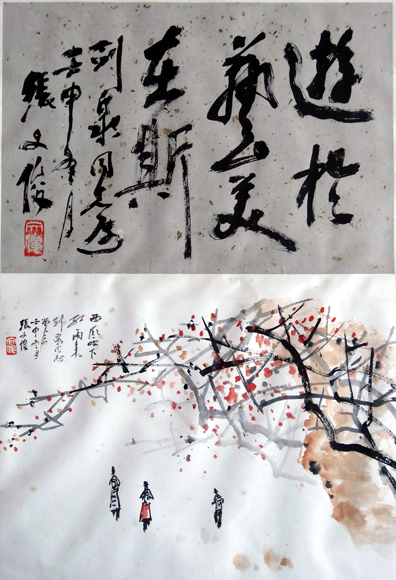 遊於
藝美
在斯
剑泉同志属
壬申冬月
張文俊
西風吹下
紅雨来
剑泉同志
壬申冬月
張文俊